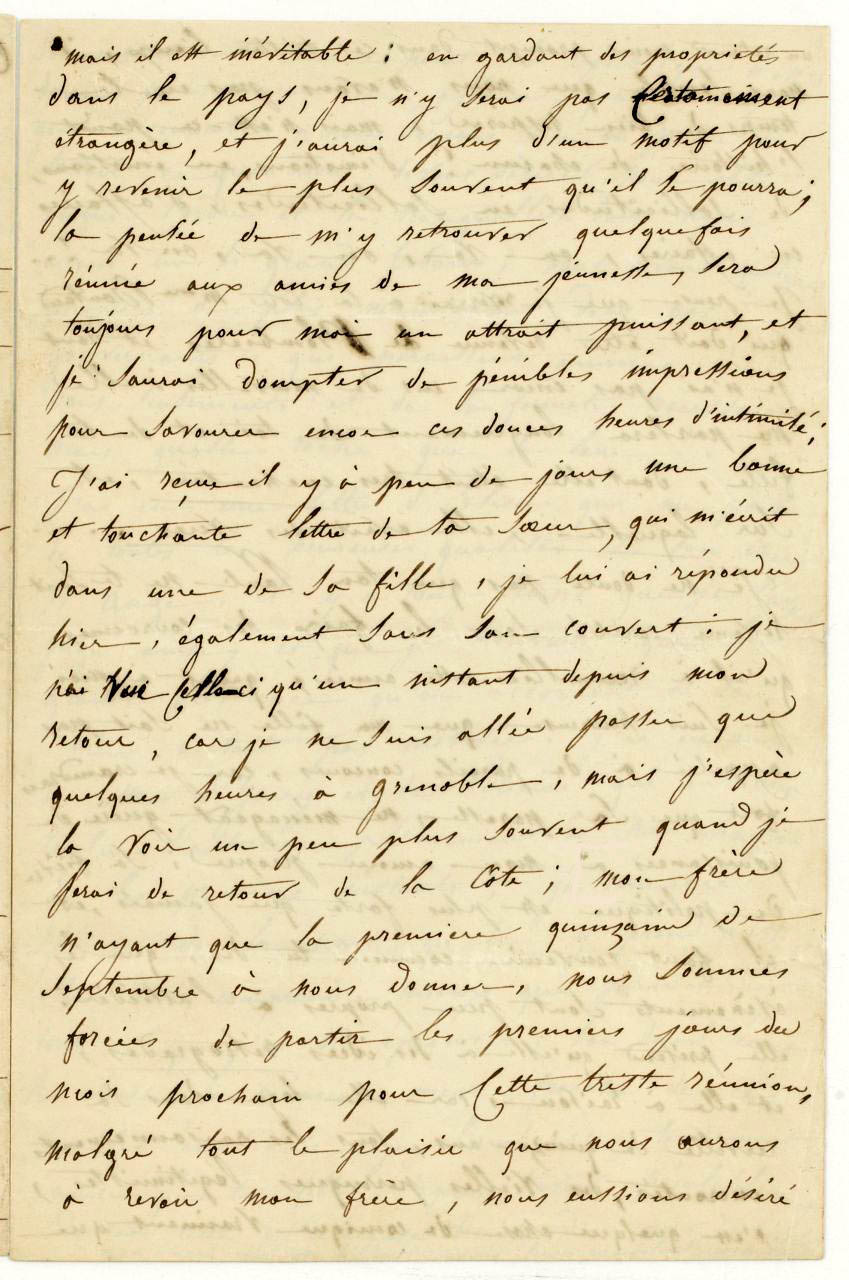 mais il est inévitable : en gardant des proprietés
dans le pays, je n'y serai pas certainement
étrangère, et j'aurai plus d'un motif pour
y revenir le plus souvent qu'il se pourra ;
la pensée de m'y retrouver quelquefois
réunie aux amies de ma jeunesse, sera
toujours pour moi un attrait puissant, et
je saurai dompter de pénibles impressions
pour savourer encore ces douces heures d'intimité ;
J'ai reçue il y à peu de jours une bonne
et touchante lettre de ta sœur, qui m'écrit
dans une de sa fille, je lui ai répondu
hier, également sous son couvert : je
n'ai vue celle ci qu'un instant depuis mon
retour, car je ne suis allée passer que
quelques heures à Grenoble, mais j'espère
la voir un peu plus souvent quand je
serai de retour de la Côte ; mon frère
n'ayant que la premiere quinzaine de
Septembre à nous donner, nous sommes
forcées de partir les premiers jours du
mois prochain pour cette triste réunion,
malgré tout le plaisir que nous aurons
à revoir mon frère, nous eussions désiré